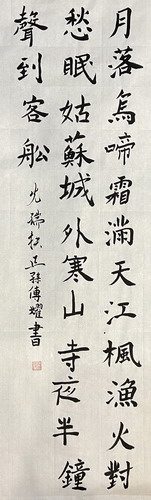 月落烏啼霜滿天江楓漁火對
愁眠姑蘇城外寒山寺夜半鐘
聲到客船
孫傳耀書